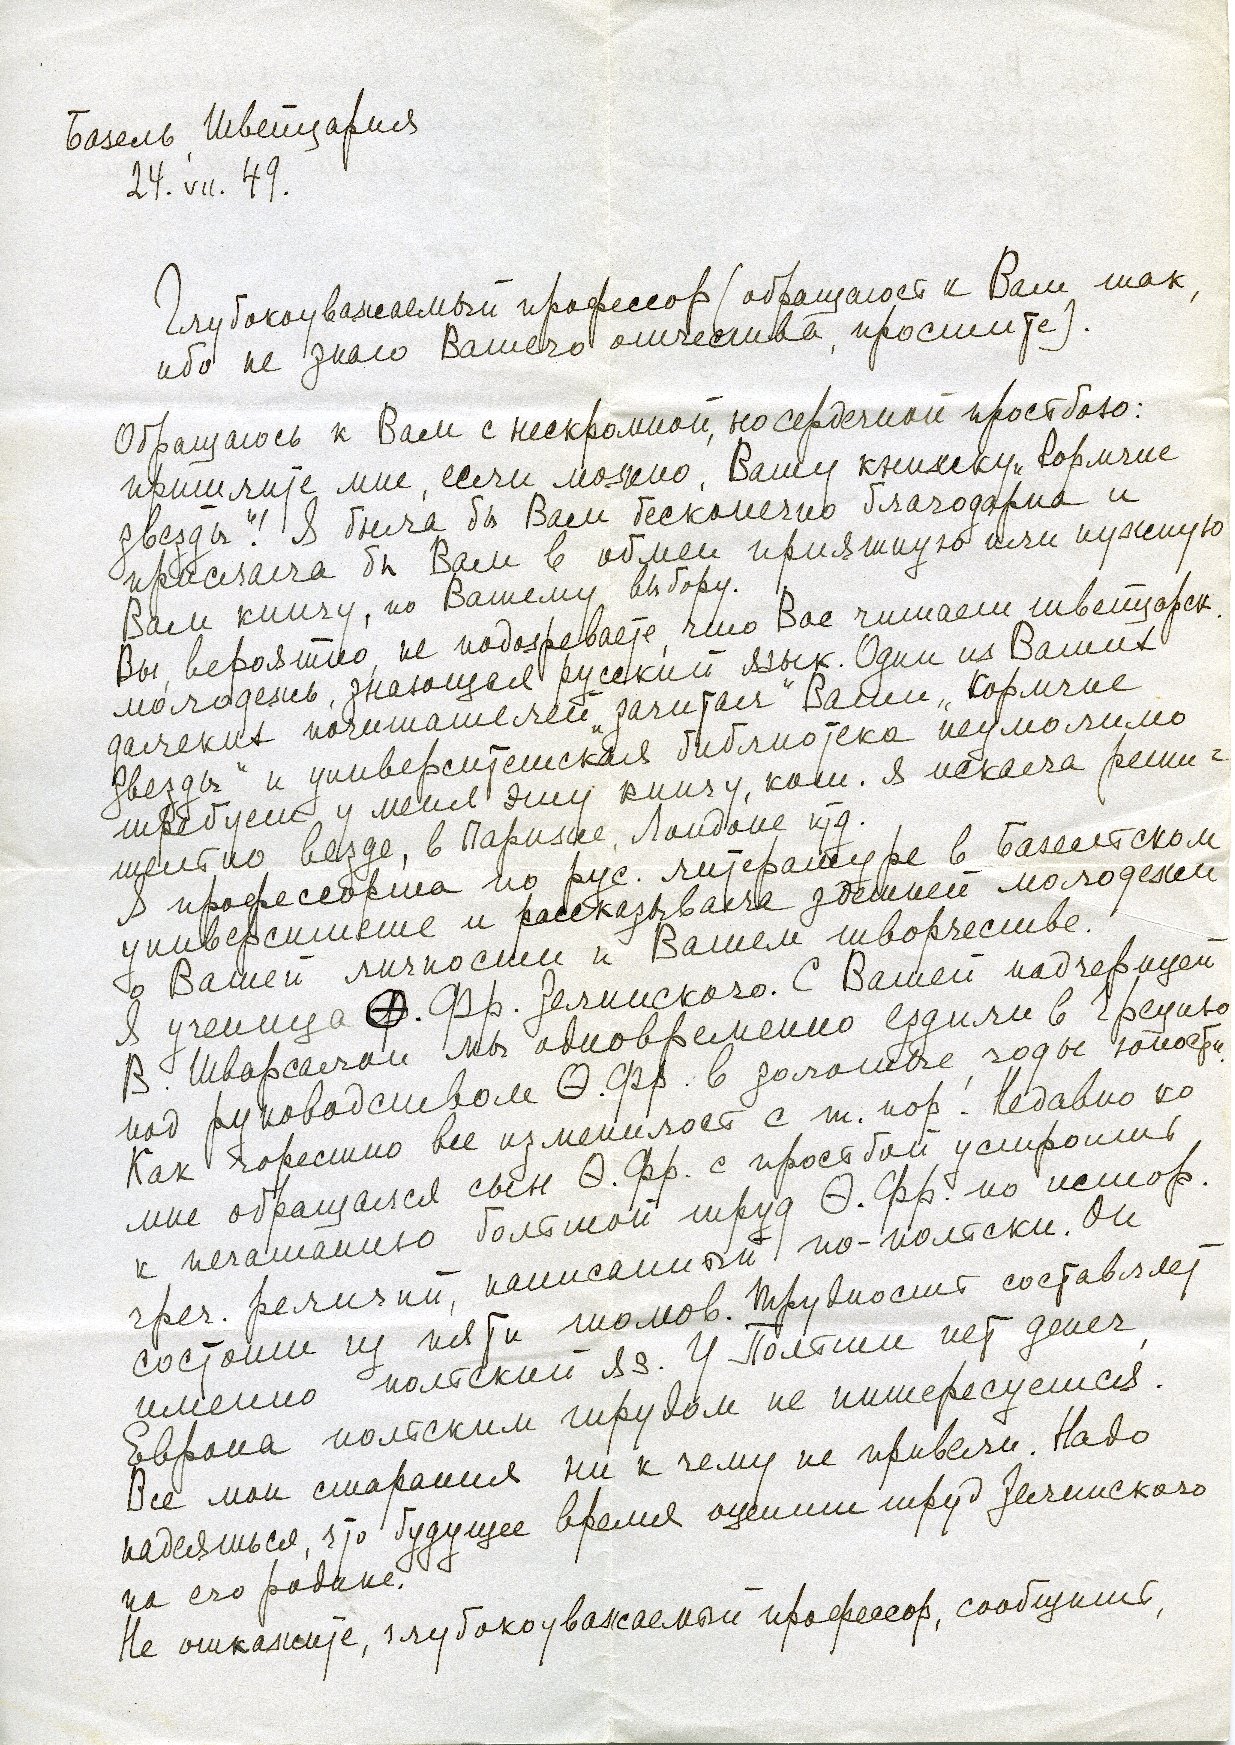 Базель, Швейцария
24. VII. 49.
Глубокоуважаемый профессор (обращаюсь к Вам так,
ибо не знаю Вашего отчества, простите).
Обращаюсь к Вам с нескромной, но сердечной просьбою:
пришлите мне, если можно, Вашу книжку „Кормчие
звезды“! Я была бы Вам бесконечно благодарна и
прислала бы Вам в обмен приятную или нужную
Вам книгу, по Вашему выбору.
Вы, вероятно, не подозреваете, что Вас читает швейцарск.
молодежь, знающая русский язык. Один из Ваших
далеких почитателей „зачитал“ Ваши „Кормчие
звезды“ и университетская библиотека неумолимо
требует у меня эту книгу, кот. я искала реши-
тельно везде, в Париже, Лондоне итд.
Я профессорша по рус. литературе в Базельском
университете и рассказывала здешней молодежи
о Вашей личности и Вашем творчестве.
Я ученица Ф. Фр. Зелинского. С Вашей падчерицей
В. Шварсалон мы одновременно ездили в Грецию
под руководством Ф. Фр. в золотые годы юности.
Как горестно все изменилось с т. пор! Недавно ко
мне обращался сын Ф. Фр. с просьбой устроить
к печатанию большой труд Ф. Фр. по истор.
греч. религий, написанный по-польски. Он
состоит из пяти томов. Трудность составляет
именно польский яз. У Польши нет денег,
Европа польским трудом не интересуется.
Все мои старания ни к чему не привели. Надо
надеяться, что будущее время оценит труд Зелинского
на его родине.
Не откажите, глубокоуважаемый профессор, сообщить,